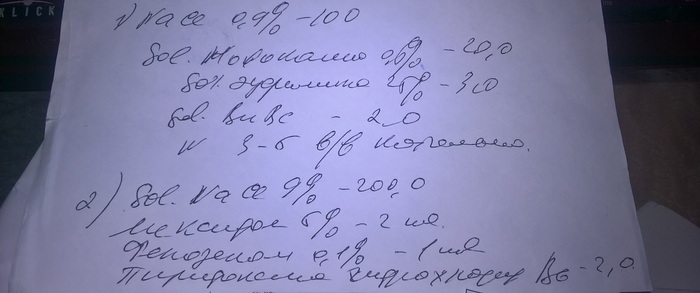 KLICK
1) NaCl 0,9% – 100
Sol. Новокаина 0,5% – 20,0
Sol. Эуфиллина – 3,0
Sol. Вит Вс – 2,0
N 3-5 в/в капельно.
2) Sol. NaCl 9% – 200,0
Мексидол 5% – 2 мл.
0,1% – 1 мл
Пиридоксина гидрохлорид В6 – 2,0